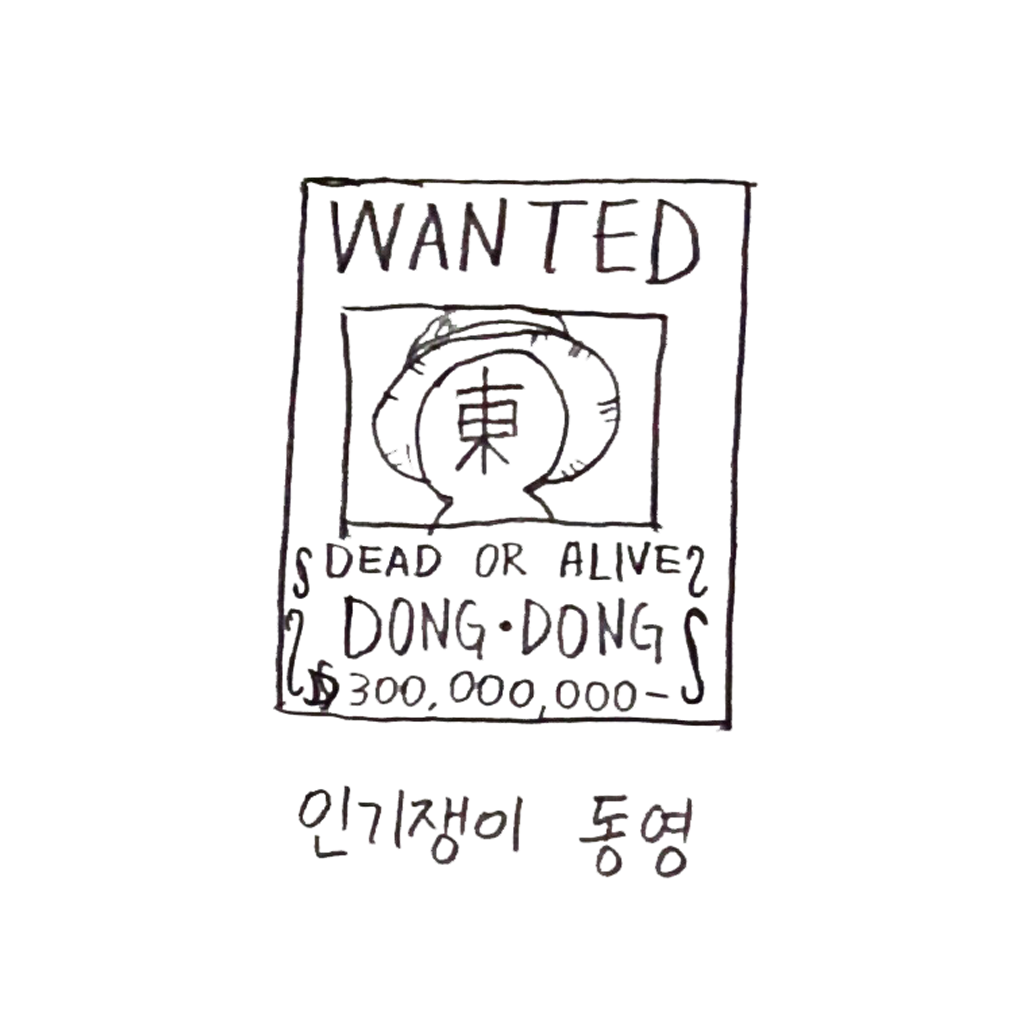 WANTED
東
DEAD OR ALIVE
DONG·DONG
$300,000,000-
인기쟁이 동영